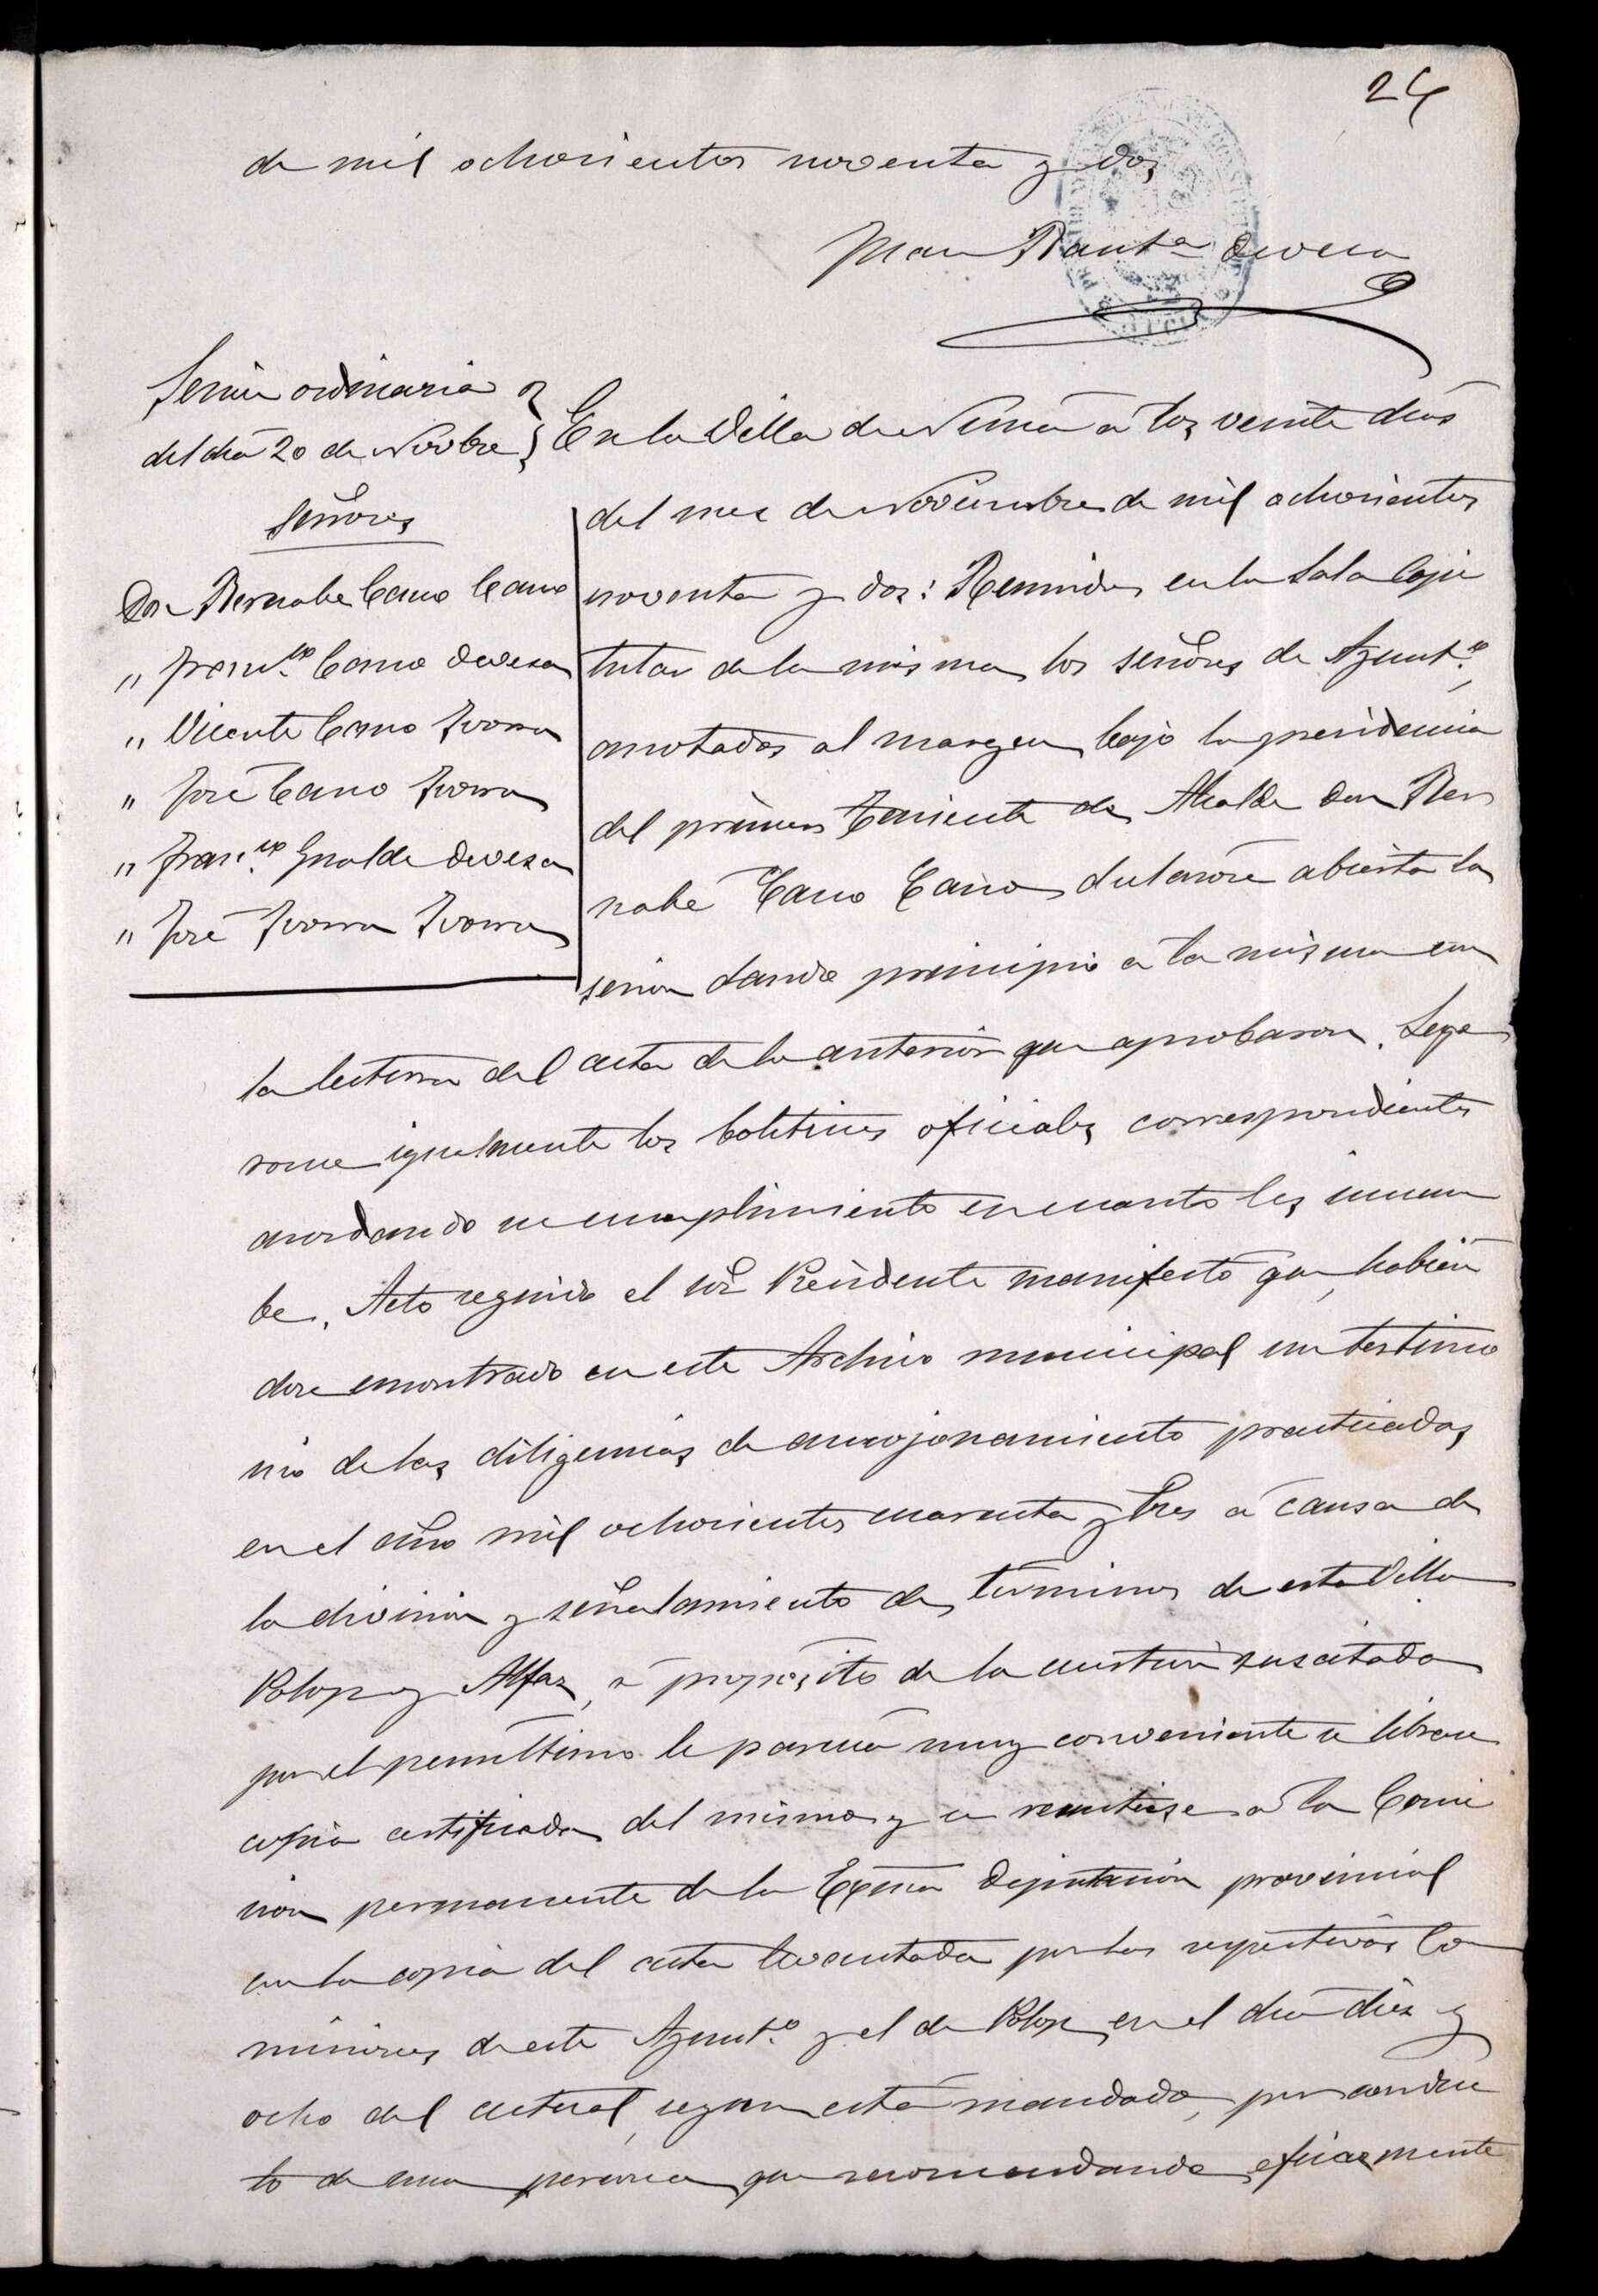 24
de mil ochocientos noventa y dos
Juan Baut.ª Devesa
Sesión ordinaria
del dia 20 de Novbre
Señores
Don Bernabe Cano Cano
" Franc.co Cano Devesa
" Vicente Cano Ivorra
" José Cano Ivorra
" Franc.co Gualde Devesa
" José Ivorra Ivorra
En la Villa de Nucia a los veinte dias
del mes de Noviembre de mil ochocientos
noventa y dos: Reunidos en la Sala Capi
tular de la misma los señores de Ayunt.º,
anotados al margen bajo la presidencia
del primer Teniente de Alcalde Don Ber
nabé Cano Cano declarose abierta la
sesion dando principio a la misma con
la lectura del acta de la anterior que aprobaron. Leye
ronse igualmente los boletines oficiales correspondientes
acordando su cumplimiento en cuanto les incum
be. Acto seguido el Sor Presidente manifestó que, habien
dose encontrado en este Archivo municipal un testimo
nio de las diligencias de amojonamiento practicadas
en el año mil ochocientos cuarenta y tres a causa de
la division y señalamiento de terminos de esta Villa
Polop y Alfaz, a proposito de la cuestion suscitada
por el penultimo le parecia muy conveniente se librase
copia certificada del mismo y se remitiese a la Comi
sion permanente de la Excma Diputacion provincial
con la copia del acta levantada por las respectivas Co
misiones de este Ayunt.º y el de Polop en el dia diez y
ocho del actual, segun está mandado, por conduc
to de una persona que recomendando eficazmente